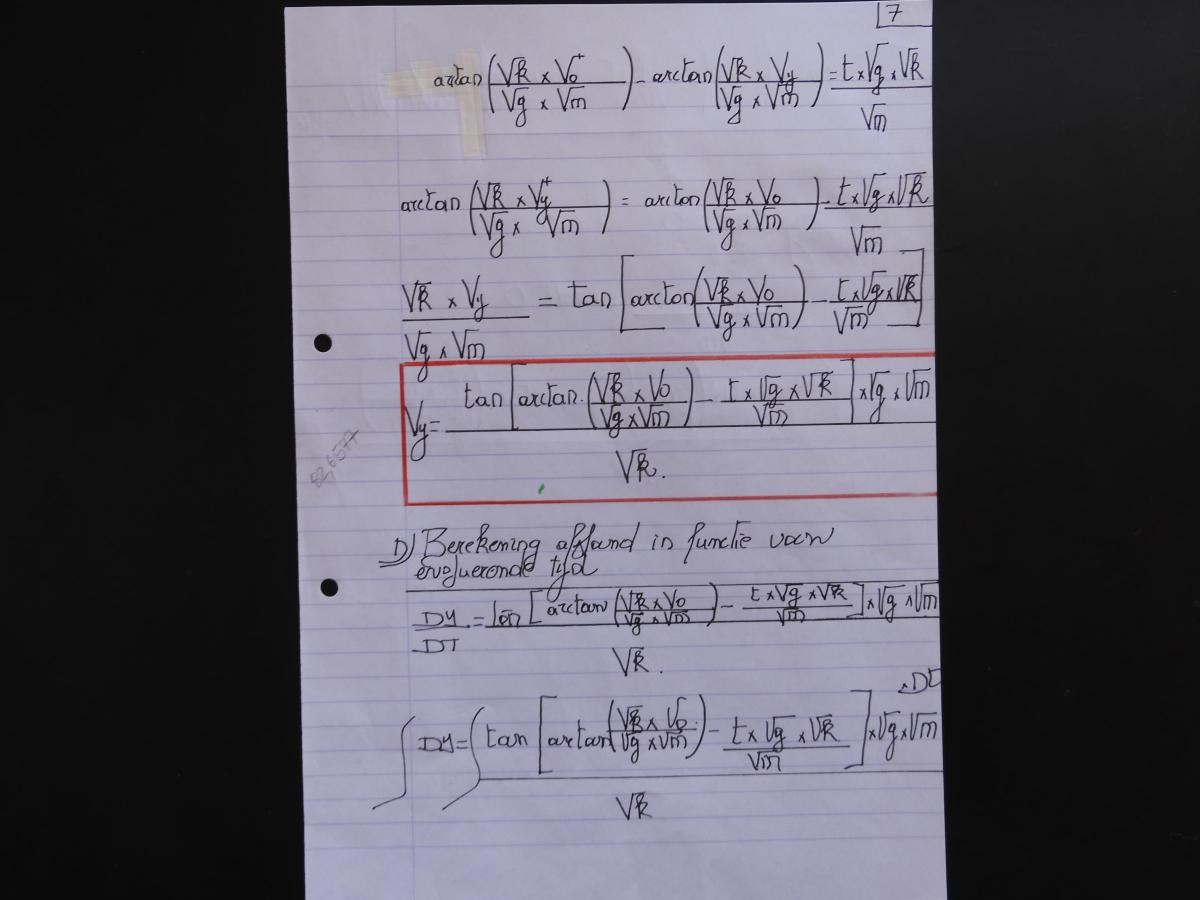 7
arctan(√k × V₀⁺ / √g × √m) - arctan(√k × Vy / √g × √m) = t × √g × √k / √m
arctan(√k × Vy⁺ / √g × √m) = arctan(√k × V₀ / √g × √m) - t × √g × √k / √m
√k × Vy / √g × √m = tan[arctan(√k × V₀ / √g × √m) - t × √g × √k / √m]
Vy = tan[arctan.(√k × V₀ / √g × √m) - t × √g × √k / √m] × √g × √m / √k.
82,6577
D) Berekening afstand in functie van
evoluerende tijd
DY/DT = tan[arctan(√k × V₀ / √g × √m) - t × √g × √k / √m] × √g × √m / √k.
∫DY = ∫tan[arctan(√k × V₀ / √g × √m) - t × √g × √k / √m] × √g × √m / √k × DT